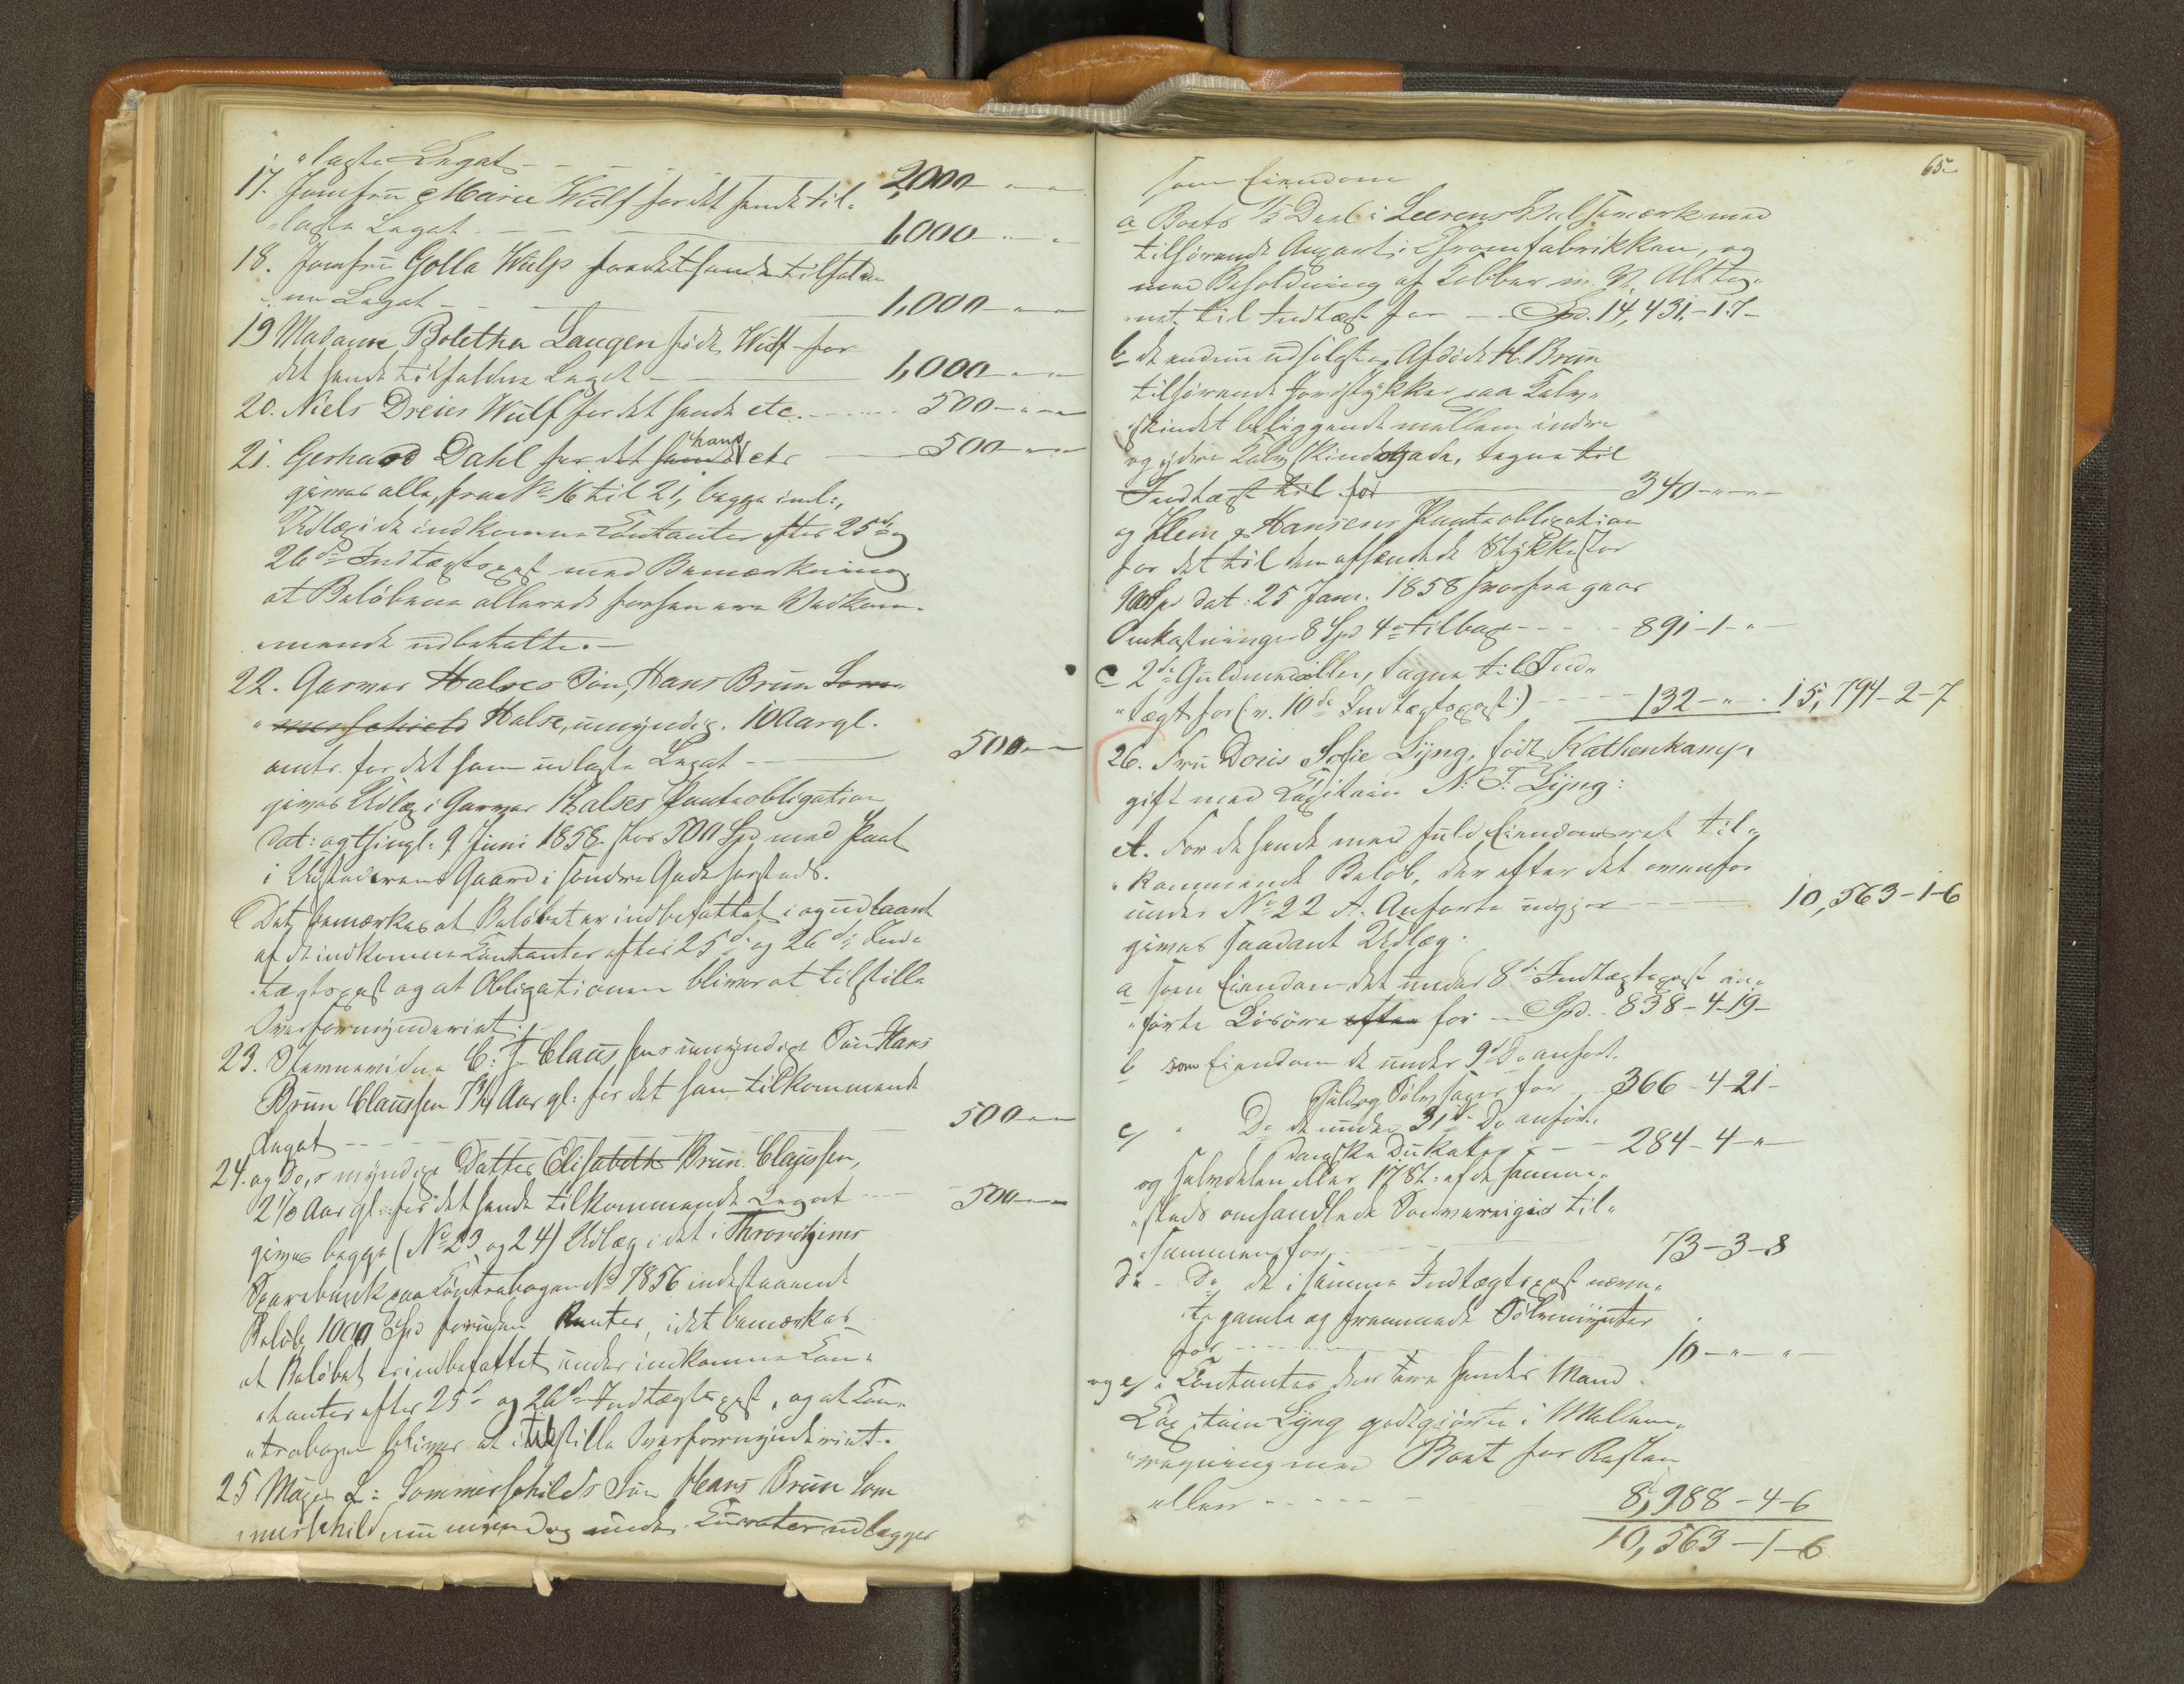 "lagte Legat - - - 2,000 - " - "
17. Jomfru Maria Wulf for det hende til-
"lagte Legat - - 1,000 - " - "
18. Jomfru Golla Wulf for det hende tilfaldne
Legat - - - 1,000 - " - "
19 Madame Boletha Laugen født Wulf for
det hende tilfaldne Legat - 1,000 - " - "
20. Niels Dreier Wulf for det hende etc. 500 - " - "
21. Gerhard Dahl for det ham etc 500 - " - "
gives alle, fra No 16 til 21, begge incl:,
Udlæg i de indkomne Contanter efter 25de og
26de Indtægtspost med Bemærkning
at Beløbene allerede forhen ere Vedkom-
"mende udbetalte. -
22. Garver Halses Søn, Hans Brun Som-
"merschields Halse, umyndig, 10 Aar gl.
omtr. for det ham udlagte Legat - 500 - "
gives Udlæg i Garver Halses Panteobligation
dat: og thingl: 9 Juni 1858 stor 500 Spd med Pant
i Udstederens Gaard i søndre Gade hersteds.
Det bemærkes at Beløbet er indbefattet i og udlaant
af de indkomne Contanter efter 25de og 26de Ind-
"tægtspost og at Obligationen bliver at tilstille
Overformynderiet.
23. C: F. Claussens umyndige Søn Hans
Brun Claussen 7 3/4 Aar gl: for det ham tilkommende
Legat - - - 500 - "
24. og Do, umyndige Datter Elisabeth Brun Claussen,
2 1/2 Aar gl. for det hende tilkommende Legat 500 - "
gives begge (No 23 og 24) Udlæg i det i Throndhjems
Sparebank paa Contrabogen No 7856 indestaaende
Beløb 1000 Spd foruden Renter, idet bemærkes
at Beløbet er indbefattet under indkomne Con-
"tanter efter 25de og 26de Indtægtspost, og at Con-
"trabogen bliver at tilstille Overformynderiet.
25 Major L: Sommerschilds Søn Hans Brun Som
"merschild, umyndig under Curator udlægges
65
som Eiendom
a Boets 1/5 Deel i Leerens Valseværk med
tilhørende Anpart i Chromfabrikken, og
med Beholdning af Kobber m. V. Alt tag-
"net til Indtægt for - Spd. 14,431 - 17 -
b de endnu usolgte, Afdøde H. Brun
tilhørende Jordstykker paa Kalv-
"skindet beliggende mellem indre
og ydre Kalvskindsgade, tagne til
Indtægt til for 340 - " - " -
og Klem & Hansens Panteobligation
for det til dem afhændede Stykke stor
900 Spd dat: 25 Janr. 1858 hvorfra gaar
Omkostninger 8 Spd 4 " tilbage - - - 891 - 1 - " -
c 2de Guldmedailler, tagne til Ind-
"tægt for (v. 10de Indtægtspost:) - - - 132 - " - 15,794 - 2 - 7
26. Fru Doris Sofie Lyng, født Kathenkamp,
gift med Capitain N: F: Lyng:
A. For de hende med fuld Eiendomsret til-
"kommende Beløb, der efter det ovenfor
under No 22 A. Anførte udgjør 10,563 - 1 - 6
gives saadant Udlæg:
a som Eiendom det under 8de Indtægtspost an-
"førte Løsøre efter for - Spd. 838 - 4 - 19 -
b som Eiendom de under 9de Do anført.
Guld og Sølvsager for 366 - 4 - 21 -
c/ " Do de under 31te Do anførte
danske Dukater - - 284 - 4 - " -
og Halvdelen eller 17 St: af de samme-
"steds omhandlede Souvereigns til-
"sammen for 73 - 3 - 8
d - Do de i samme Indtægtspost nævn-
"te gamle og fremmede Sølvmynter
for - - - 10 - " - " -
og e/ i Contanter der ere hendes Mand
Capitain Lyng godtgjorte i Mellem-
"regning med Boet for Resten
eller - - - - - 8,988 - 4 - 6
10,563 - 1 - 6